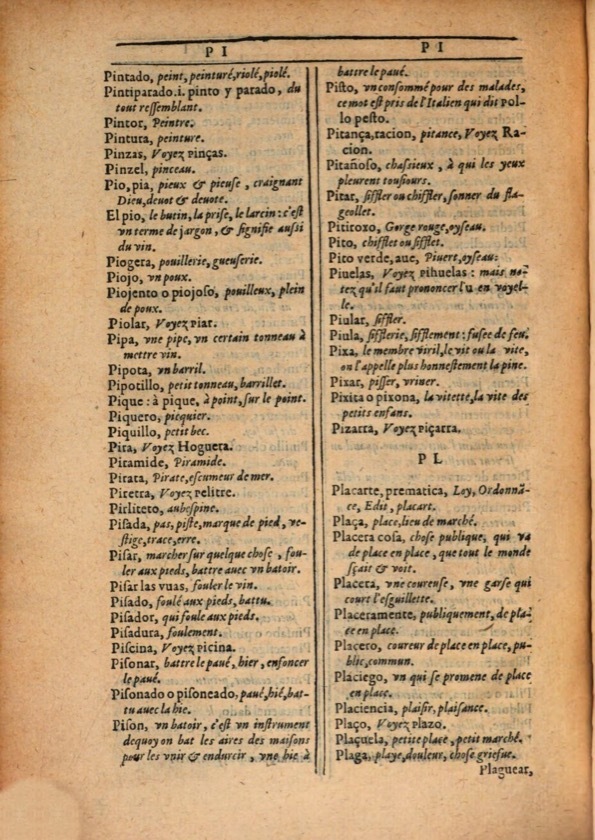 P I
Pintado, peint, peinturé, riolé, piolé.
Pintiparado .i. pinto y parado, du
tout ressemblant.
Pintor, Peintre.
Pintura, peinture.
Pinzas, Voyez Pinças.
Pinzel, pinceau.
Pio, pia, pieux & pieuse, craignant
Dieu, deuot & deuote.
El pio, le butin, la prise, le larcin : c'est
vn terme de jargon, & signifie aussi
du vin.
Piogera, pouillerie, gueuserie.
Piojo, vn poux.
Piojento o piojoso, pouilleux, plein
de poux.
Piolar, Voyez Piar.
Pipa, vne pipe, vn certain tonneau à
mettre vin.
Pipota, vn barril.
Pipotillo, petit tonneau, barrillet.
Pique : à pique, à point, sur le point.
Piquero, picquier.
Piquillo, petit bec.
Pira, Voyez Hoguera.
Piramide, Piramide.
Pirata, Pirate, escumeur de mer.
Piretra, Voyez Pelitre.
Pirliteto, aubespine.
Pisada, pas, piste, marque de pied, ve-
stige, trace, erre.
Pisar, marcher sur quelque chose, fou-
ler aux pieds, battre auec vn batoir.
Pisar las vuas, fouler le vin.
Pisado, foulé aux pieds, battu.
Pisador, qui foule aux pieds.
Pisadura, foulement.
Piscina, Voyez Picina.
Pisonar, battre le paué, hier, enfoncer
le paué.
Pisonado o pisoneado, paué, hié, bat-
tu auec la hie.
Pison, vn batoir, c'est vn instrument
dequoy on bat les aires des maisons
pour les vnir & endurcir, vne hie à
P I
battre le paué.
Pisto, vn consommé pour des malades,
ce mot est pris de l'Italien qui dit Pol-
lo pesto.
Pitança, racion, pitance, Voyez Ra-
cion.
Pitañoso, chassieux, à qui les yeux
pleurent tousiours.
Pitar, siffler ou chiffler, sonner du fla-
geollet.
Pitiroxo, Gorge rouge, oyseau.
Pito, chifflet ou sifflet.
Pito verde, aue, Piuert, oyseau:
Piuelas, Voyez Pihuelas : mais no-
tez qu'il faut prononcer l'u en voyel-
le.
Piular, siffler.
Piula, sifflerie, sifflement : fusee de feu.
Pixa, le membre viril, le vit ou la vite,
on l'appelle plus honnestement la pine.
Pixar, pisser, vriner.
Pixita o pixona, la vitette, la vite des
petits enfans.
Pizarra, Voyez Piçarra.
P L
Placarte, prematica, Loy, Ordonnã-
ce, Edit, placart.
Plaça, place, lieu de marché.
Placera cosa, chose publique, qui va
de place en place, que tout le monde
sçait & voit.
Placera, vne coureuse, vne garse qui
court l'esguillette.
Placeramente, publiquement, de pla-
ce en place.
Placero, coureur de place en place, pu-
blic, commun.
Placiego, vn qui se promene de place
en place.
Placiencia, plaisir, plaisance.
Plaço, Voyez Plazo.
Plaçuela, petite place, petit marché.
Plaga, playe, douleur, chose griefue.
Plaguear,